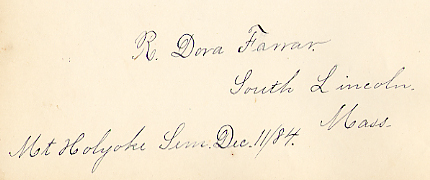 R. Dora Farrar.
South Lincoln.
Mass.
Mt Holyoke Sem. Dec. 11/84.